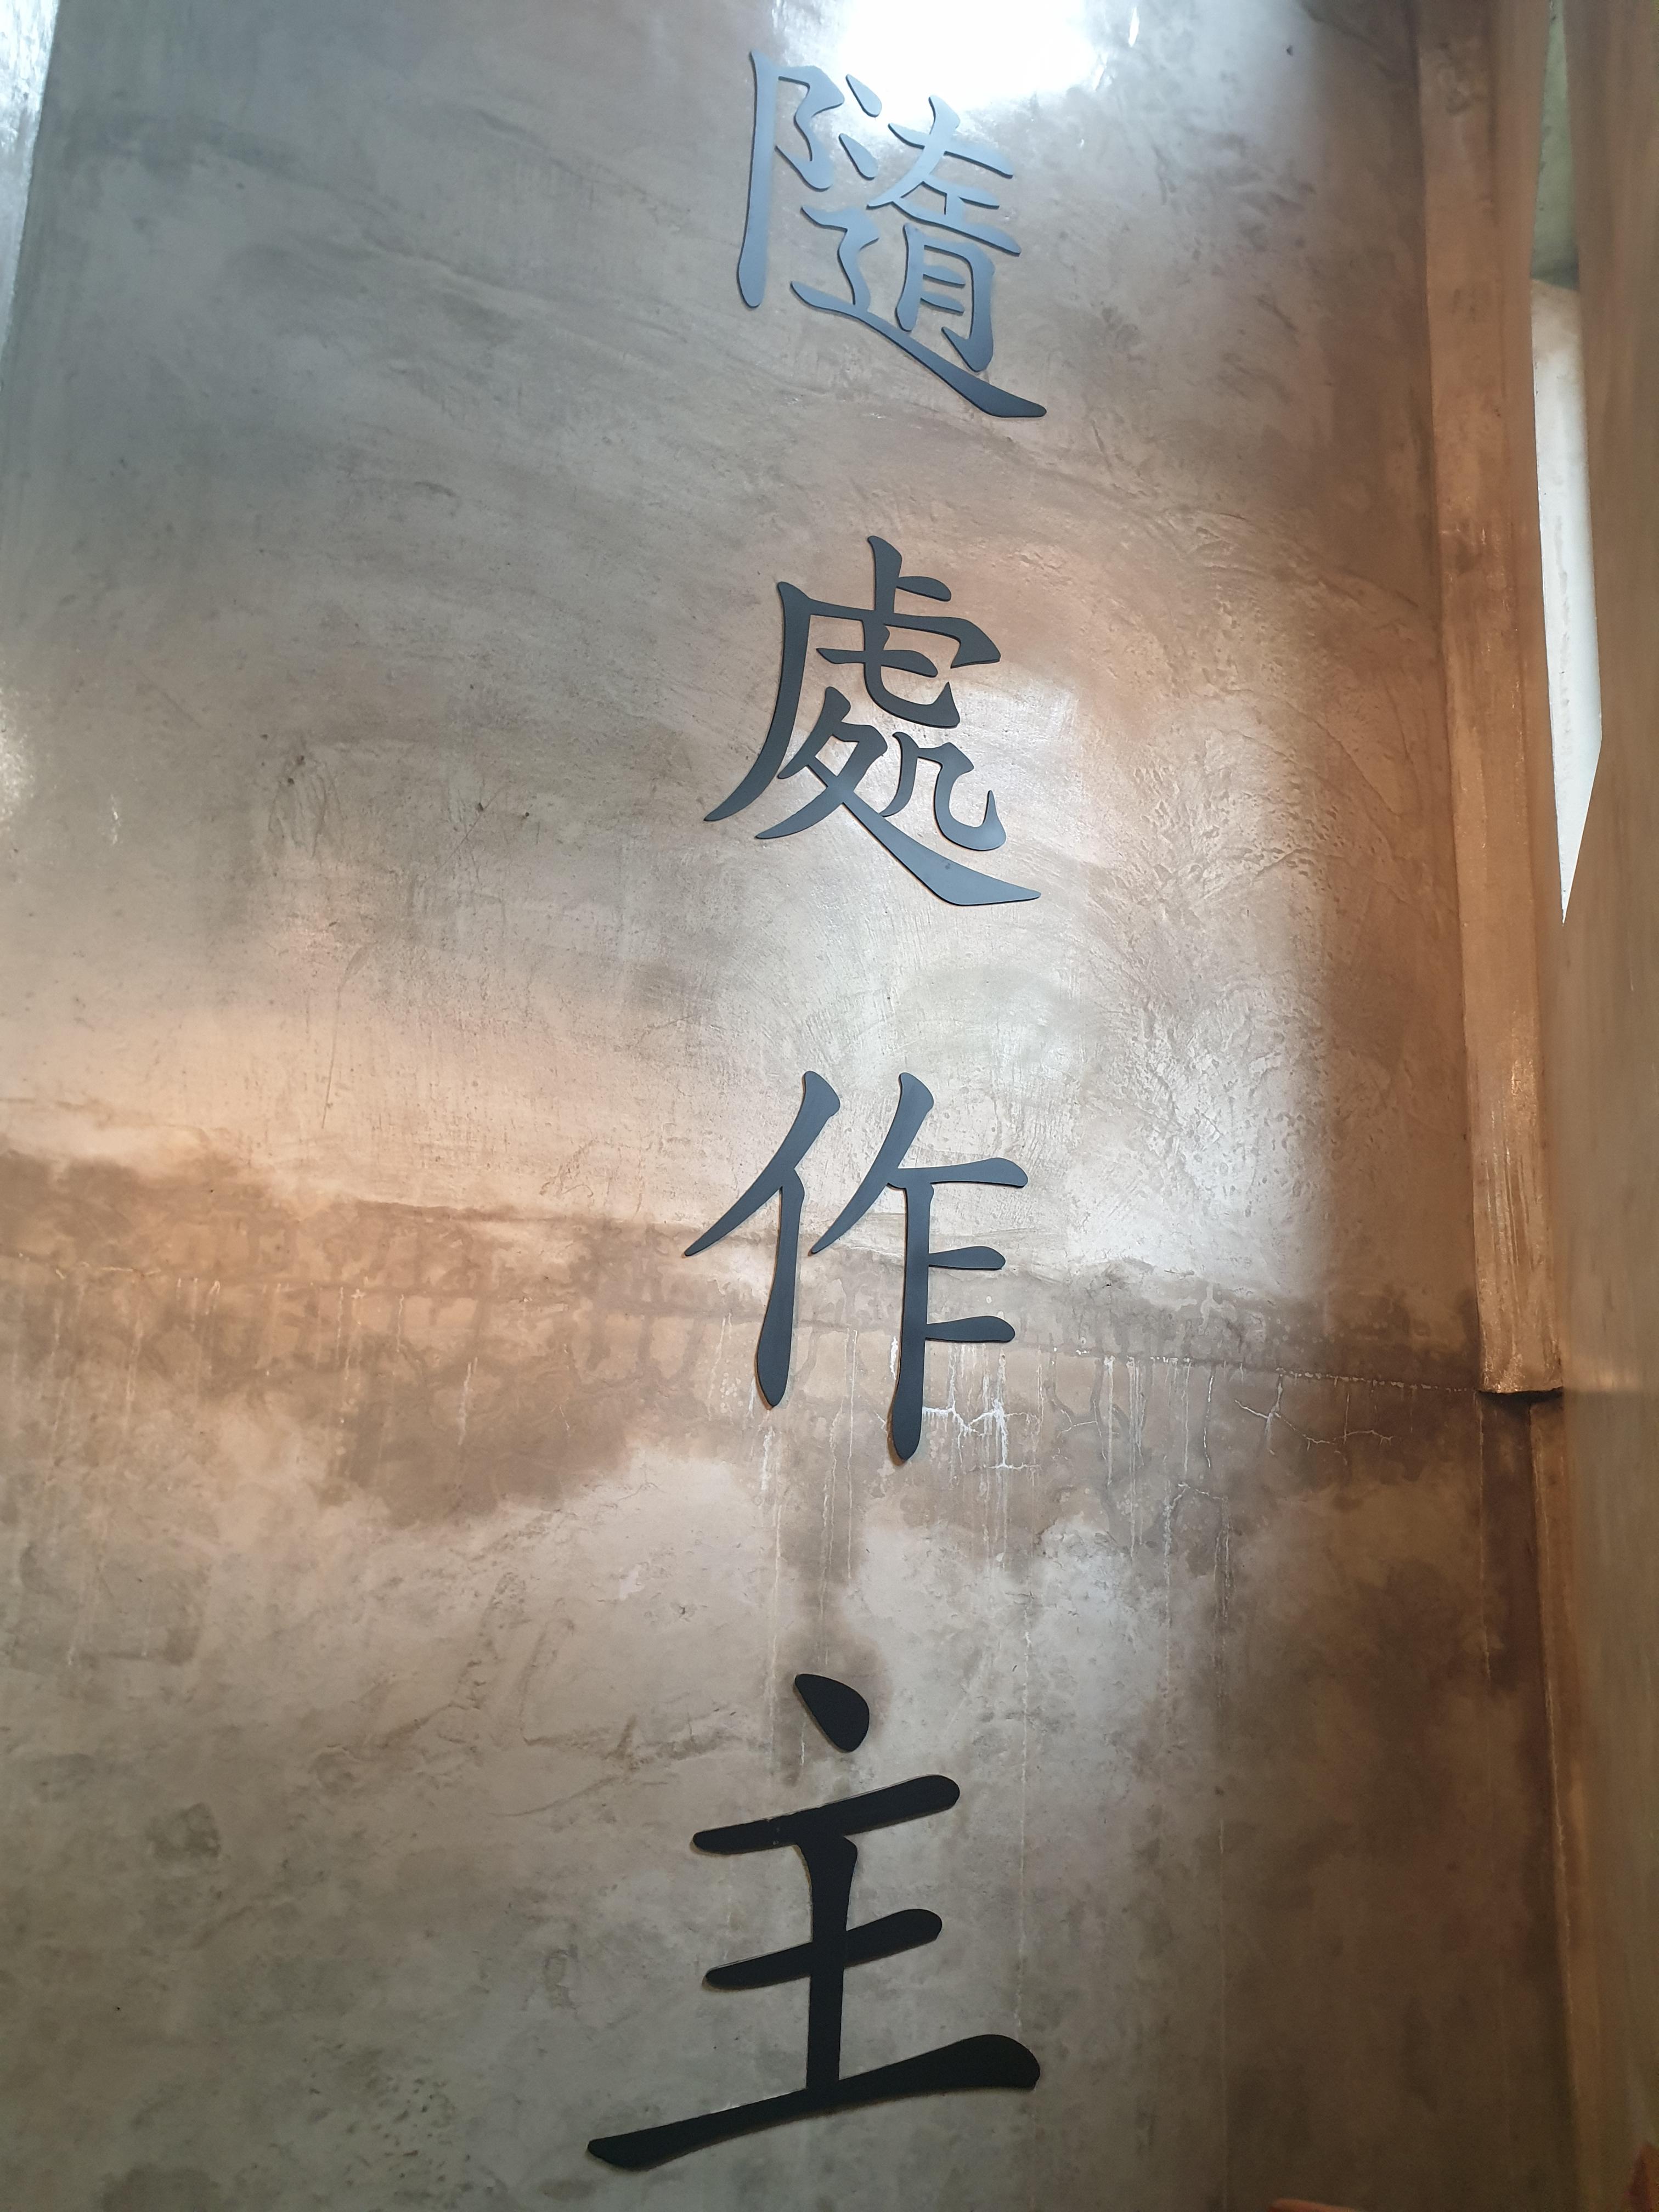 隨處作主